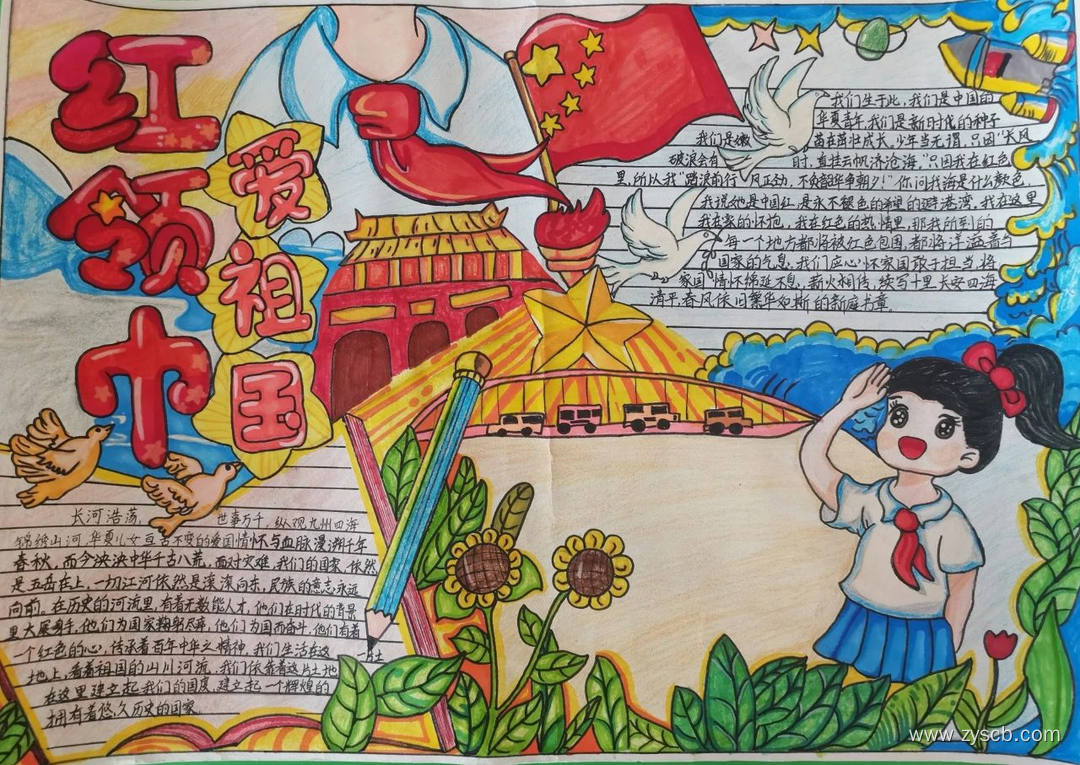 红领巾
爱祖国
我们生于此,我们是中国的
华夏青年,我们是新时代的种子
我们是嫩 苗在茁壮成长,少年当无谓,只因"长风
破浪会有 时,直挂云帆济沧海."只因我在红色
里,所以我"踏浪前行 风正劲,不负韶华争朝夕!"你问我海是什么颜色
我说她是中国红,是永不褪色的希望的避港湾,我在这里
我在家的怀抱,我在红色的热情里,那我所到的
每一个地方都将被红色包围,都将洋溢着
国家的气息,我们应心怀家国敢于担当将
家国情怀绵延不息,薪火相传,续写十里长安四海
清平春风依旧繁华如斯的新庭书章.
长河浩荡, 世事万千,纵观九州四海
锦绣山河,华夏儿女亘古不变的爱国情怀与血脉漫溯千年
春秋,而今泱泱中华千古八荒,面对灾难,我们的国家,依然
是五岳在上,一切江河依然是滚滚向东,民族的意志永远
向前,在历史的河流里,有着无数能人才,他们在时代的背景
里大展身手,他们为国家鞠躬尽瘁,他们为国而奋斗,他们有着
一个红色的心,传承着百年中华之精神,我们生活在这一片土
地上,看着祖国的山川河流,我们依靠着这片土地
在这里建立起我们的国度,建立起一个辉煌的
拥有着悠久历史的国家.
www.zyscb.com